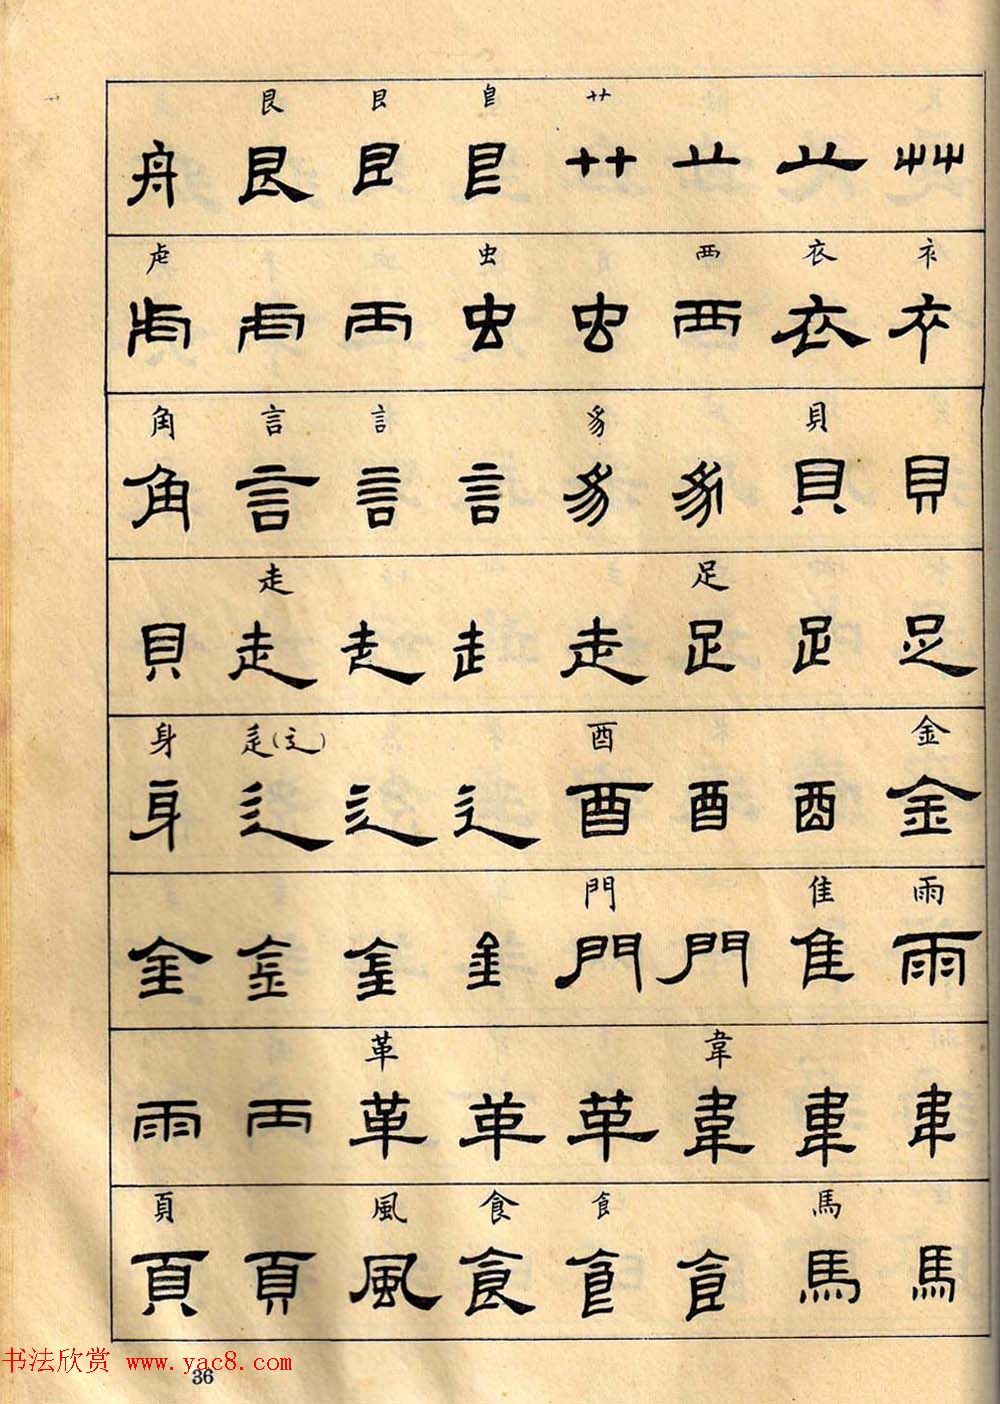 艮 艮 𠂤 艹
舟 艮 艮 艹 艹 艹 艸
虍 虫 覀 衣 衤
虍 虍 覀 虫 虫 覀 衣 衤
角 言 訁 豸 貝
角 言 訁 訁 豸 豸 貝 貝
走 足
貝 走 走 走 走 足 足 足
身 辵(辶) 酉 金
身 辶 辶 辶 酉 酉 酉 金
門 隹 雨
金 金 金 金 門 門 隹 雨
革 韋
雨 雨 革 革 革 韋 韋 韋
頁 風 食 飠 馬
頁 頁 風 食 飠 飠 馬 馬
书法欣赏 www.yac8.com
36